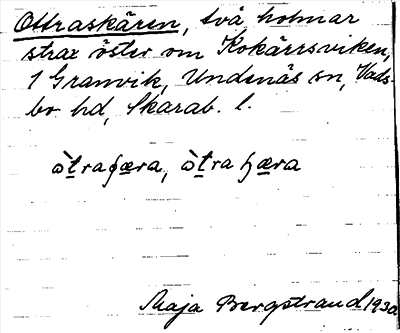 Ottraskären, två holmar
strax öster om Kokärrsviken,
1 Granvik, Undenäs sn, Vads-
bo hd, Skarab. l.
Maja Bergstrand 1930